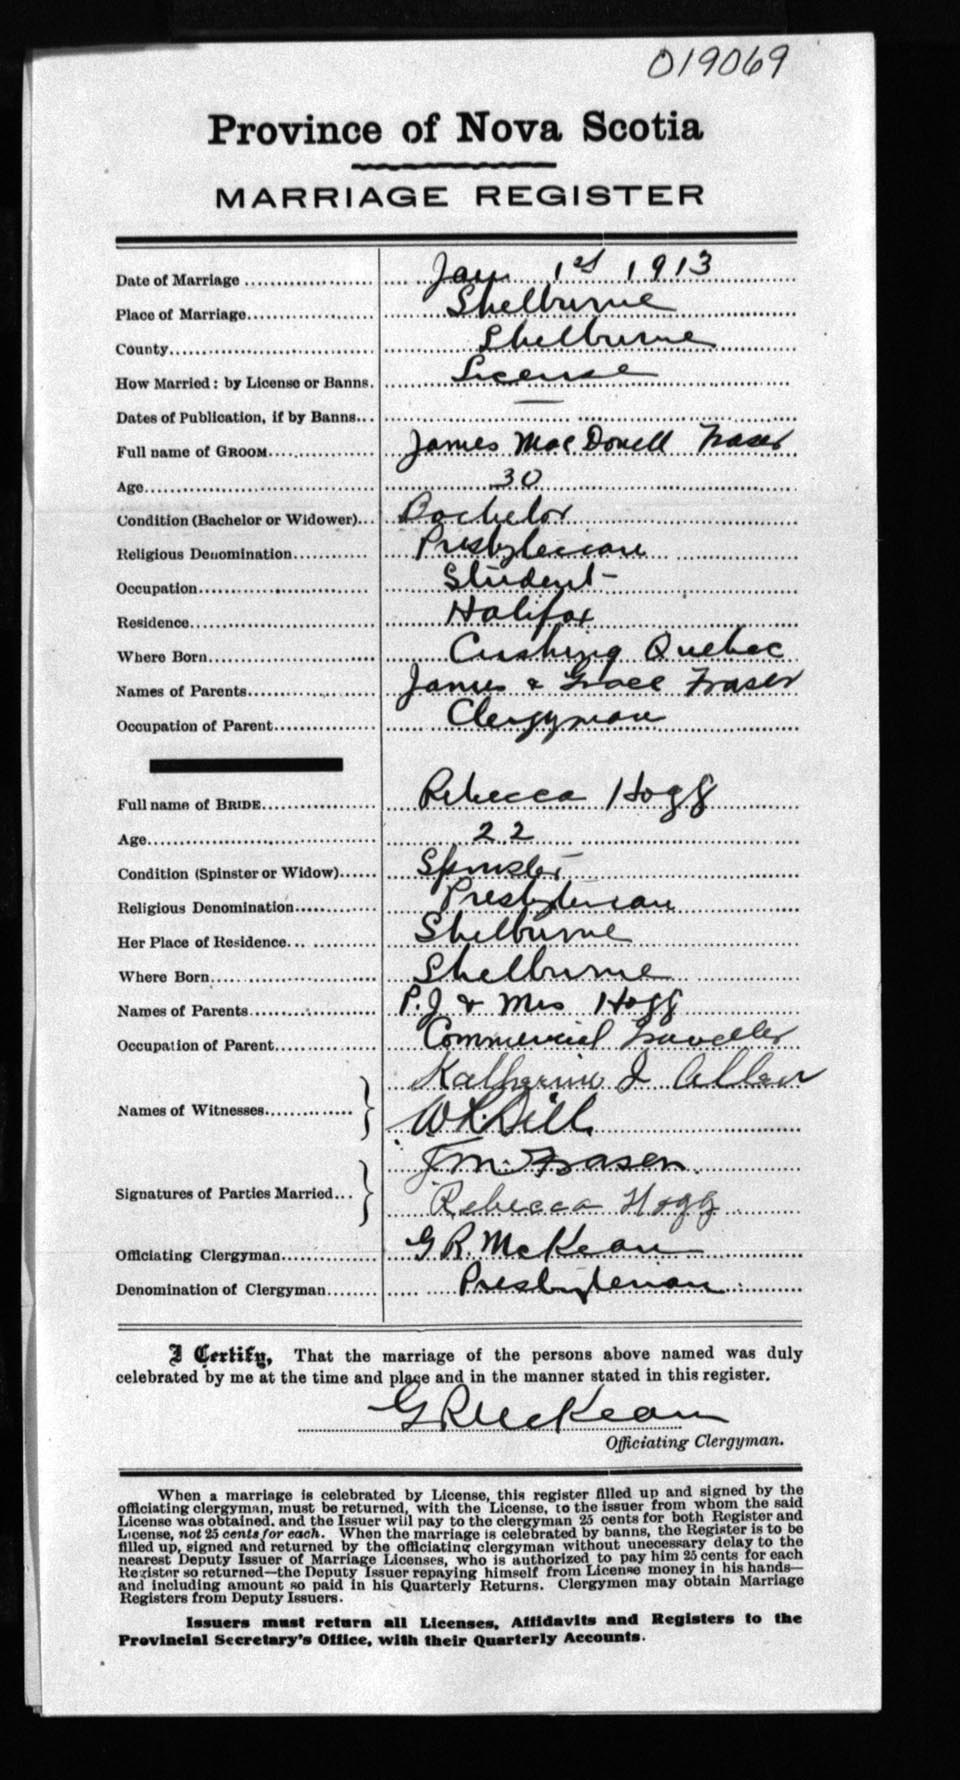 019069
Province of Nova Scotia
MARRIAGE REGISTER
Date of Marriage Jan 1st 1913
Place of Marriage Shelburne
County Shelburne
How Married: by License or Banns. License
Dates of Publication, if by Banns —
Full name of GROOM James MacDonell Fraser
Age 30
Condition (Bachelor or Widower) Bachelor
Religious Denomination Presbyterian
Occupation Student
Residence Halifax
Where Born Cushing Quebec
Names of Parents James & Grace Fraser
Occupation of Parent Clergyman
Full name of BRIDE Rebecca Hogg
Age 22
Condition (Spinster or Widow) Spinster
Religious Denomination Presbyterian
Her Place of Residence Shelburne
Where Born Shelburne
Names of Parents P.J & Mrs Hogg
Occupation of Parent Commercial Traveller
Katherine J Allen
Names of Witnesses
W.R. Dill
J M. Fraser.
Signatures of Parties Married
Rebecca Hogg
Officiating Clergyman G R. McKean
Denomination of Clergyman Presbyterian
I Certify, That the marriage of the persons above named was duly
celebrated by me at the time and place and in the manner stated in this register.
G R McKean
Officiating Clergyman.
When a marriage is celebrated by License, this register filled up and signed by the
officiating clergyman, must be returned, with the License, to the issuer from whom the said
License was obtained, and the Issuer will pay to the clergyman 25 cents for both Register and
License, not 25 cents for each. When the marriage is celebrated by banns, the Register is to be
filled up, signed and returned by the officiating clergyman without unecessary delay to the
nearest Deputy Issuer of Marriage Licenses, who is authorized to pay him 25 cents for each
Register so returned—the Deputy Issuer repaying himself from License money in his hands—
and including amount so paid in his Quarterly Returns. Clergymen may obtain Marriage
Registers from Deputy Issuers.
Issuers must return all Licenses, Affidavits and Registers to the
Provincial Secretary's Office, with their Quarterly Accounts.